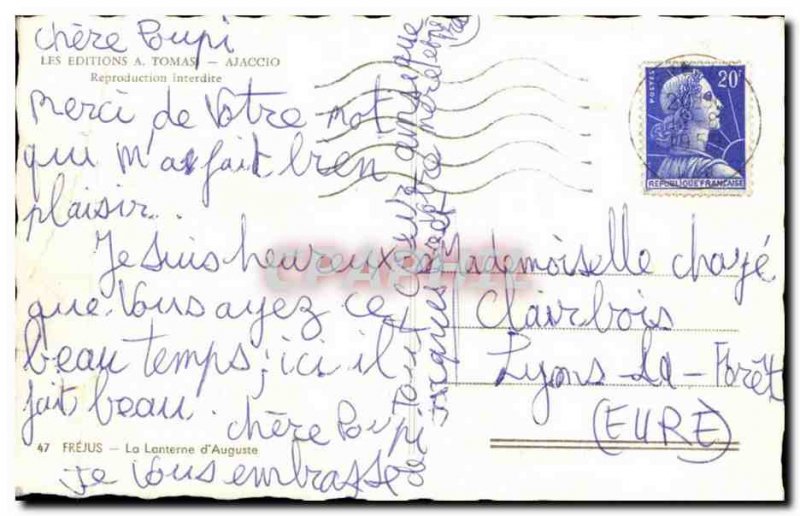 chère Poupi
LES EDITIONS A. TOMASI — AJACCIO
Reproduction interdite
Merci de Votre mot
qui m'a fait bien
plaisir.
Je suis heureux
que Vous ayez ce
beau temps; ici il
fait beau. chère Poupi
je Vous embrasse
de Tout Coeur ainsi que
Jacques
47 FRÉJUS — La Lanterne d'Auguste
POSTES
20F
REPUBLIQUE FRANÇAISE
Mademoiselle Chayé
Clairbois
Lyons-La-Forêt
(EURE)
CPAPHIL